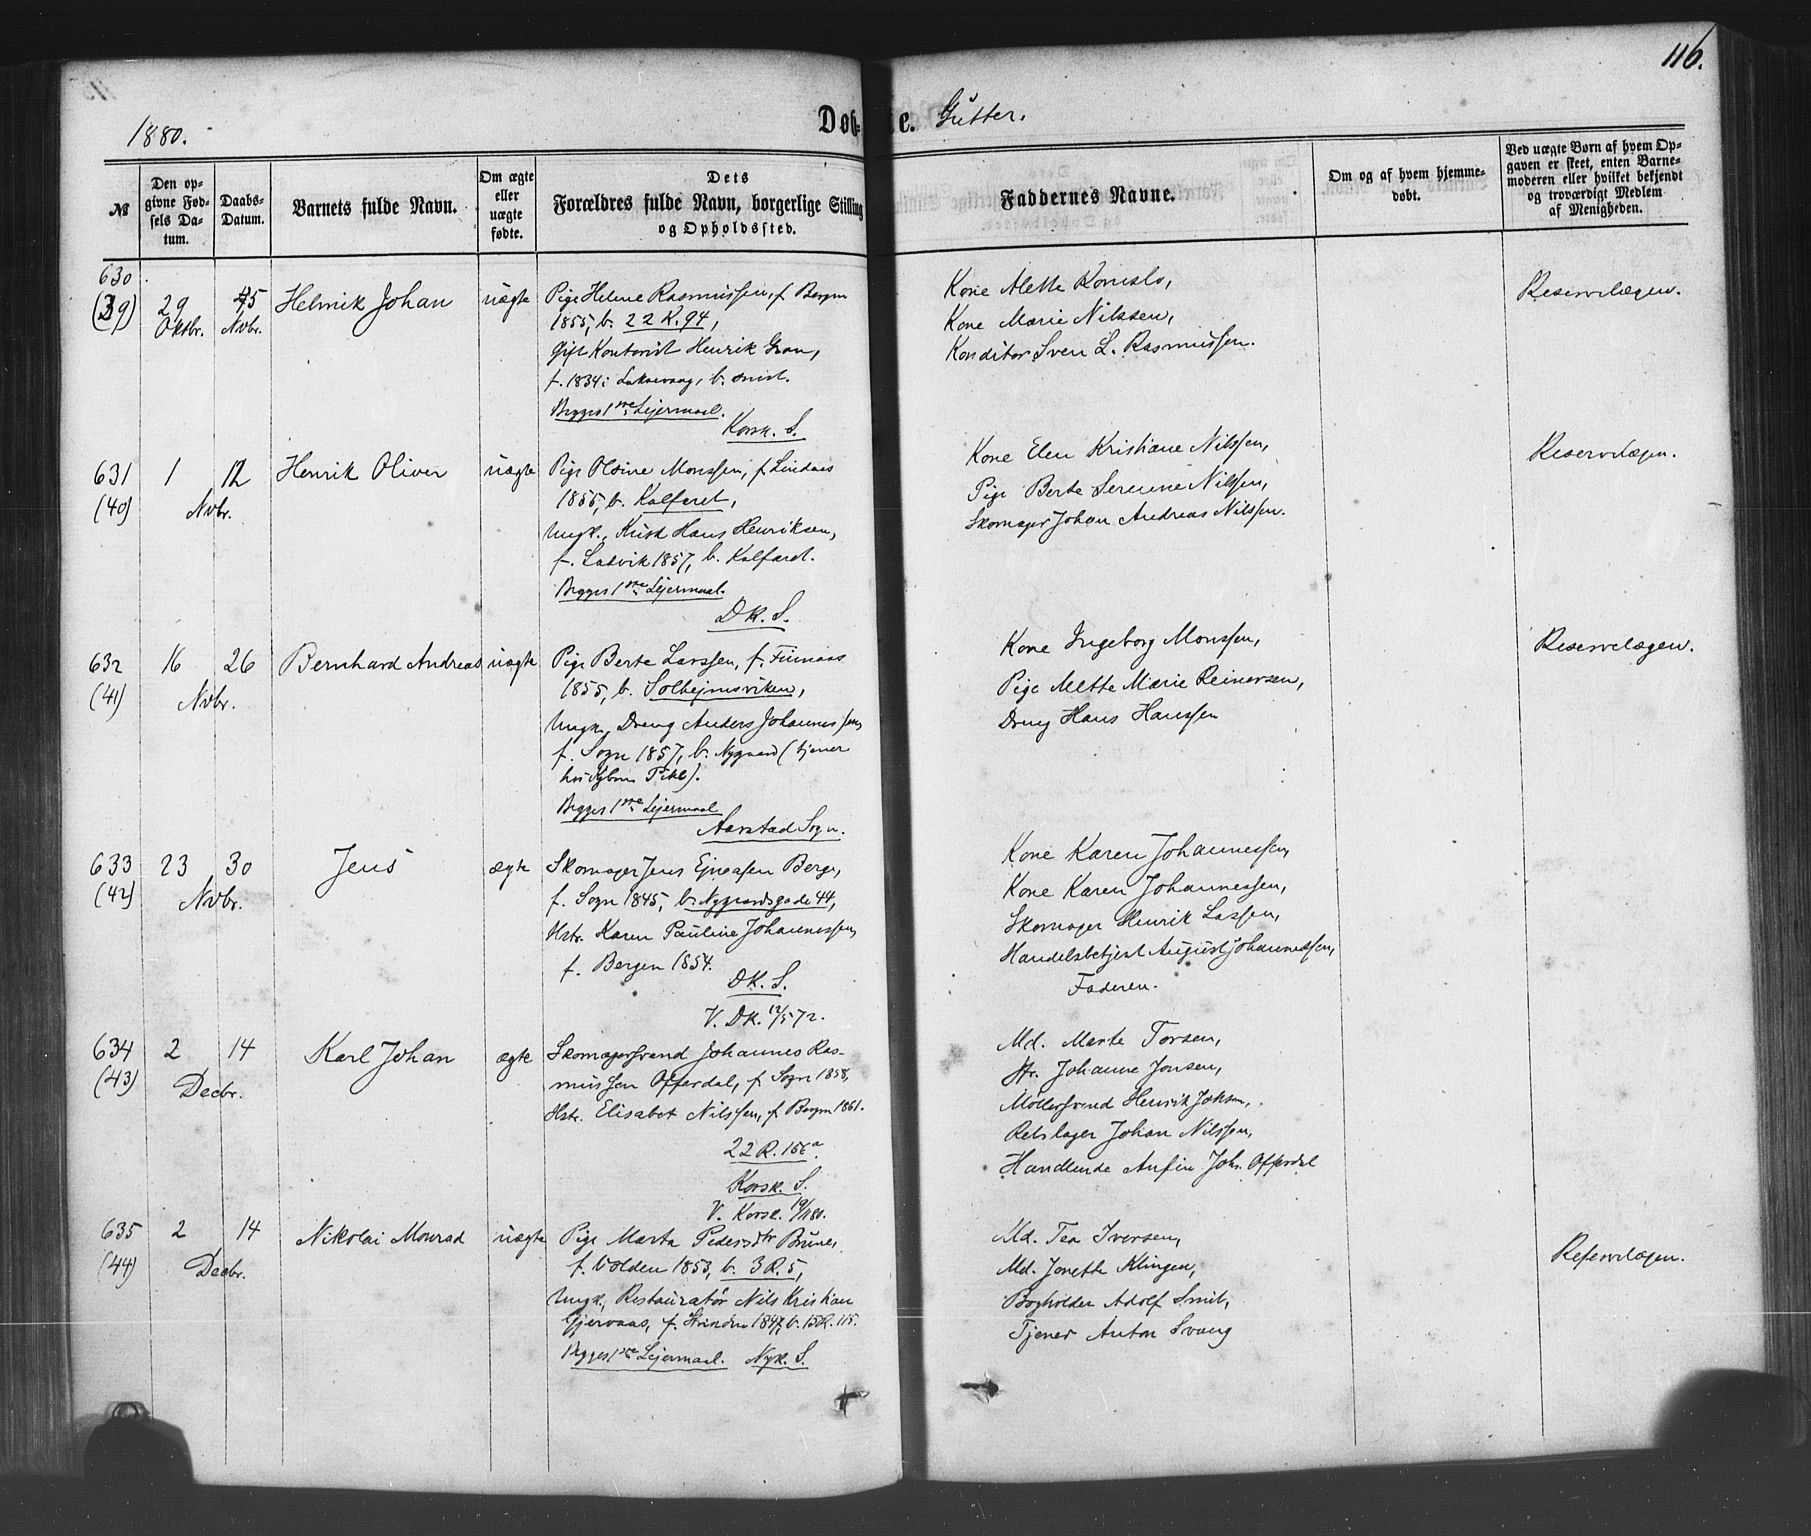 116.
1880.
Døb- te. Gutter.
№
Den opgivne Fødsels Datum.
Daabs-Datum.
Barnets fulde Navn.
Om ægte eller uægte fødte.
Dets Forældres fulde Navn, borgerlige Stilling og Opholdssted.
Faddernes Navne.
Om og af hvem hjemmedøbt.
Ved uægte Børn af hvem Opgaven er skeet, enten Barnemoderen eller hvilket bekjendt og troværdigt Medlem af Menigheden.
630
(39)
29 Oktbr.
5 Nvbr.
Helmik Johan
uægte
Pige Helene Rasmussen, f. Bergen
1855, b. 22 R. 94,
Gift Kontorist Henrik Gran,
f. 1834 i Laksevaag, b. smst.
Begges 1ste Lejermaal.
Korsk. S.
Kone Mette Romslo,
Kone Marie Nilssen,
Konditor Sven L. Rasmussen.
Reservelægen.
631
(40)
1 12
Nvbr.
Henrik Oliver
uægte
Pige Oline Monssen, f. Lindaas
1855, b. Kalfaret,
Ungk., Kusk Hans Henriksen,
f. Ladvik 1857, b. Kalfaret.
Begges 1ste Lejermaal.
DK. S.
Kone Elen Kristiane Nilssen,
Pige Berte Serine Nilssen,
Skomager Johan Andreas Nilssen.
Reservelægen.
632
(41)
16 26
Nvbr.
Bernhard Andreas
uægte
Pige Berte Larssen, f. Finnaas
1855, b. Solhejmsviken,
Ungk., Dreng Anders Johannessen,
f. Sogn 1857, b. Nygaard (tjener
hos Pihl).
Begges 1ste Lejermaal
Aarstad Sogn.
Kone Ingeborg Monssen,
Pige Mette Marie Reinersen,
Dreng Hans Hanssen
Reservelægen.
633
(42)
23 30
Nvbr.
Jens
ægte
Skomager Jens Ejnassen Berge,
f. Sogn 1845, b. Nygaardsgade 44,
Hstr. Karen Pauline Johannessen,
f. Bergen 1854.
DK. S.
V. DK. 12/5 72.
Kone Karen Johannessen,
Kone Karen Johannessen,
Skomager Henrik Lassen,
Handelsbetjent August Johannessen,
Faderen.
634
(43)
2 14
Decbr.
Karl Johan
ægte
Skomagersvend Johannes Ras-
mussen Offerdal, f. Sogn 1858,
Hstr. Elisabet Nilssen, f. Bergen 1861.
22 R. 166 a.
Korsk. S.
V. Korsk. 19/11 80.
Md. Marte Torsen,
Fr. Johanne Jonsen,
Møllersvend Henrik Joksen,
Rebslager Johan Nilssen,
Handlende Anfin Johs. Offerdal
635
(44)
2 14
Decbr.
Nikolai Monrad
uægte
Pige Marta Pedersdtr Brune,
f. Volden 1853, b. 3 R. 5,
Ungk., Restauratør Nils Kristian
Gjervaas, f. Strinden 1847, b. 15 R. 115.
Begges 1ste Lejermaal. Nyk. S.
Md. Tea Iversen,
Md. Jonette Klingen,
Bogholder Adolf Smit,
Tjener Anton Svang
Reservelægen.